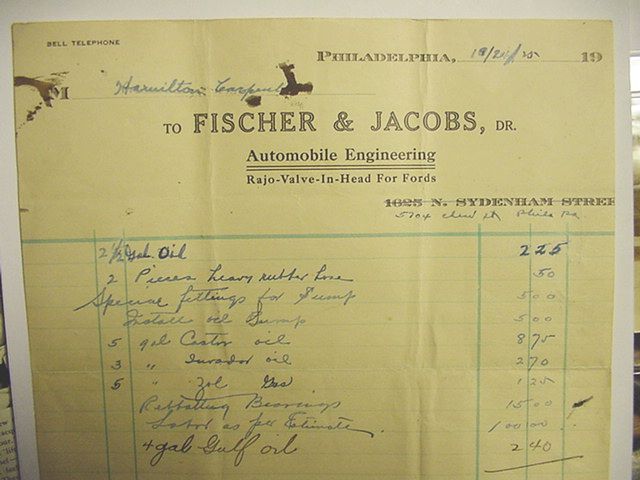 BELL TELEPHONE
PHILADELPHIA, 10/24/25 19
M Hamilton Carpent
TO FISCHER & JACOBS, DR.
Automobile Engineering
Rajo-Valve-In-Head For Fords
1625 N. SYDENHAM STREE
5704 St Phila Pa
2 1/2 Gal Oil 2 25
2 Pieces heavy rubber hose 50
Special fittings for Pump 5 00
Install oil Pump 5 00
5 gal Castor oil 8 75
3 " oil 2 70
5 " Gas 1 25
Bearings 15 00
Labor as per Estimate 100 00
4 gal Gulf oil 2 40